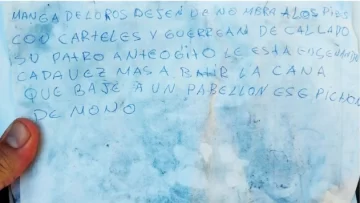 MANGA DE LOROS DEJEN DE NOMBRA A LOS PIBES
CON CARTELES Y GUERREAN DE CALLADO
SU PATRO ANTEOJITO LE ESTA ENSEÑANDO
CADA VEZ MAS A BATIR LA CANA
QUE BAJE A UN PABELLON ESE PICHO
DE MONO